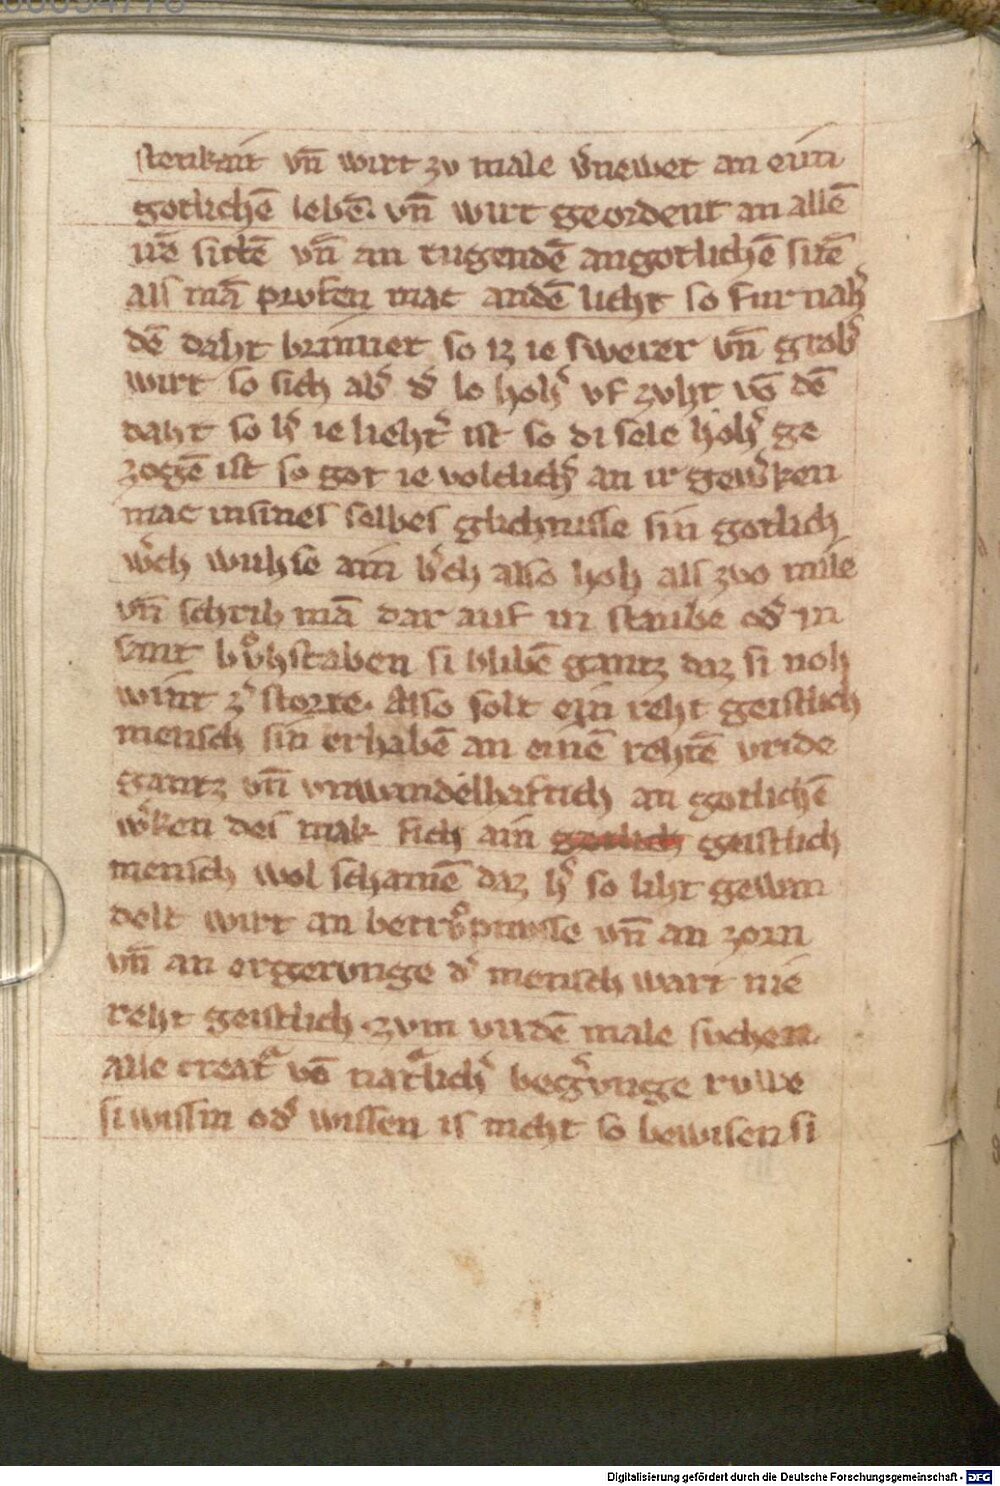 stenkait vn̄ wirt zv male v̉newet an eim
gotlichē lebē. vn̄ wirt geordent an allē
irē sittē vn̄ an tugendē angotlichē sitē
als mā prvfen mac andē licht so fur nah̉
dē daht brinnet so iz ie swerer vn̄ grob̉
wirt so sich ab̉ d̉ lo hoh̉ vf zvht vō dē
daht so h̉ ie lieht̉ ist so di sele hoh̉ ge
zogē ist so got ie volclich̉ an ir gew̉ken
mac insines selbes glichnisse sin gotlich
w̉ch wuhse ain b̉ch also hoh als zvo mile
vn̄ schrib mā dar auf in staube od̉ in
sant bvͦhstaben si blibē gantz daz si noh
wint z̉storte. Also solt ein reht geistlich
mensch sin erhabē an einē rehtē vride
gantz vn̄ vnwandelhaftich an gotlichē
w̉ken des mak sich ain gotlich geistlich
mensch wol schamē daz h̉ so liht gewan
delt wirt an betrvͦpnusse vn̄ an zorn
vn̄ an ergerunge d̉ mensch wart nie
reht geistlich. zvm virdē male suchen
alle creat̉ vō nat̉lich̉ beg̉unge ruwe
si wissin od̉ wissen is nicht so bewisen si
Digitalisierung gefördert durch die Deutsche Forschungsgemeinschaft - DFG